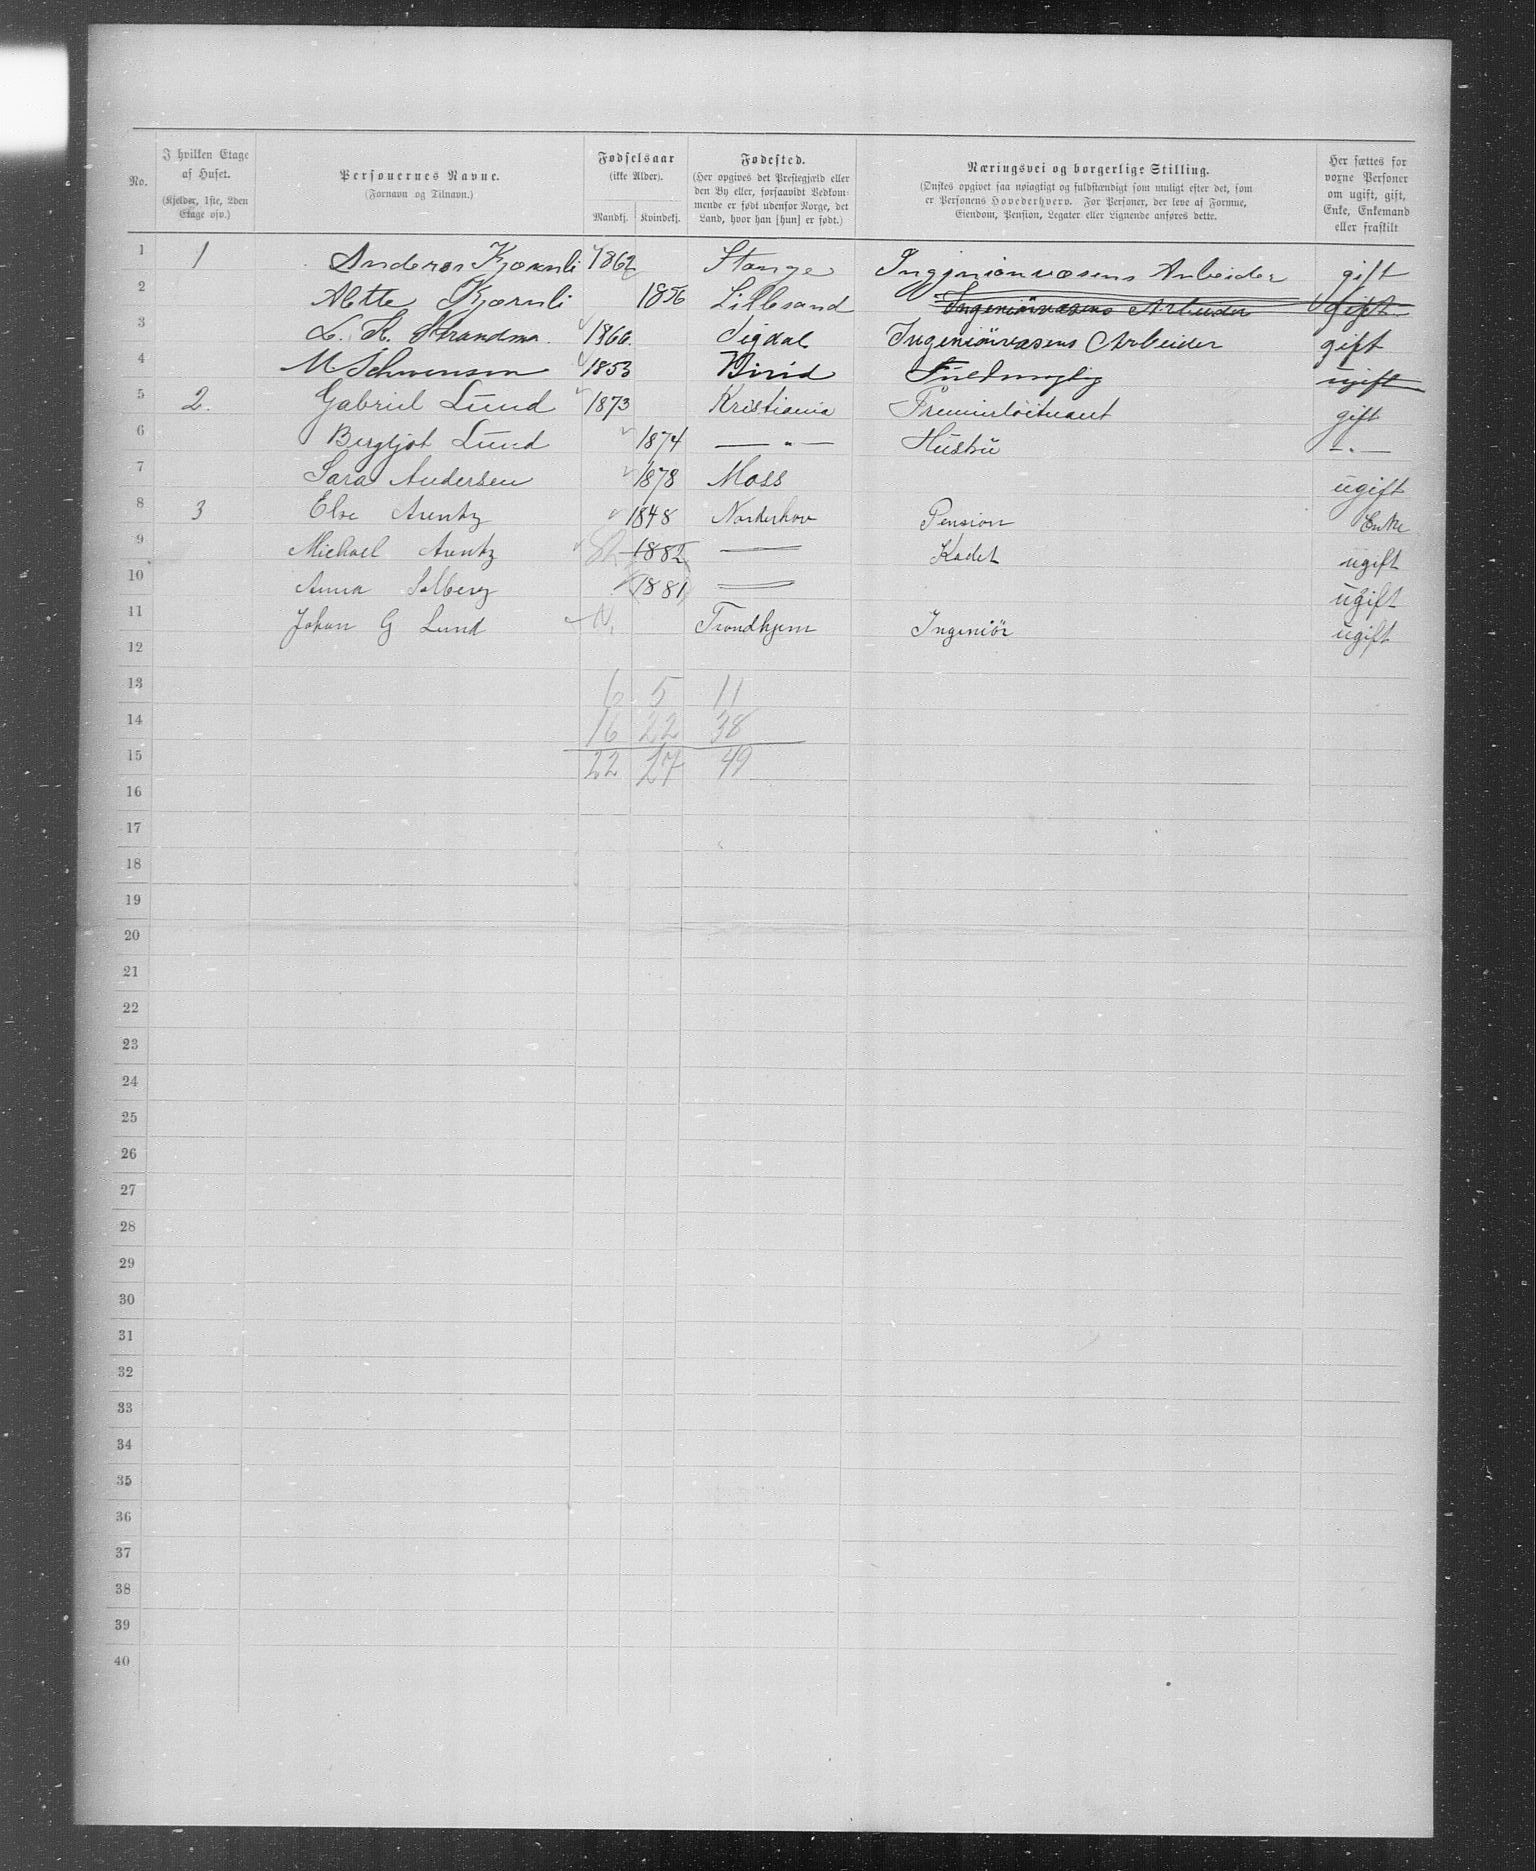 No.
I hvilken Etage af Huset. (Kjelder, 1ste, 2den Etage osv.)
Personernes Navne. (Fornavn og Tilnavn.)
Fødselsaar (ikke Alder). Mandkj. Kvindekj.
Fødested. (Her opgives det Prestegjæld eller den By eller, forsaavidt Vedkommende er født udenfor Norge, det Land, hvor han [hun] er født.)
Næringsvei og borgerlige Stilling. (Ønskes opgivet saa nøiagtigt og fuldstændigt som muligt efter det, som er Personens Hovederhverv. For Personer, der leve af Formue, Eiendom, Pension, Legater eller Lignende anføres dette.
Her sættes for voxne Personer om ugift, gift, Enke, Enkemand eller fraskilt
1 1 Anders Kjærnli 1862 Stange Ingeniørvæsens Arbeider gift
2 Mette Kjærnli 1856 Lillesand Ingeniörvæsens Arbeider gift
3 L. K. 1866 Sigdal Ingeniörvæsens Arbeider gift
4 M 1853 Birid ugift
5 2. Gabriel Lund 1873 Kristiania Premierløitnant gift
6 Bergljot Lund 1874 — " — Hustru — " —
7 Sara Andersen 1878 Moss ugift
8 3 Arentz 1848 Norderhov Pension Enke
9 Michael Arentz 82 1882 — Kadet ugift
10 Anna Solberg 1881 — ugift
11 Johan G Lund N. Trondhjem Ingeniør ugift
12
13 6 5 11
14 16 22 38
15 22 27 49
16
17
18
19
20
21
22
23
24
25
26
27
28
29
30
31
32
33
34
35
36
37
38
39
40